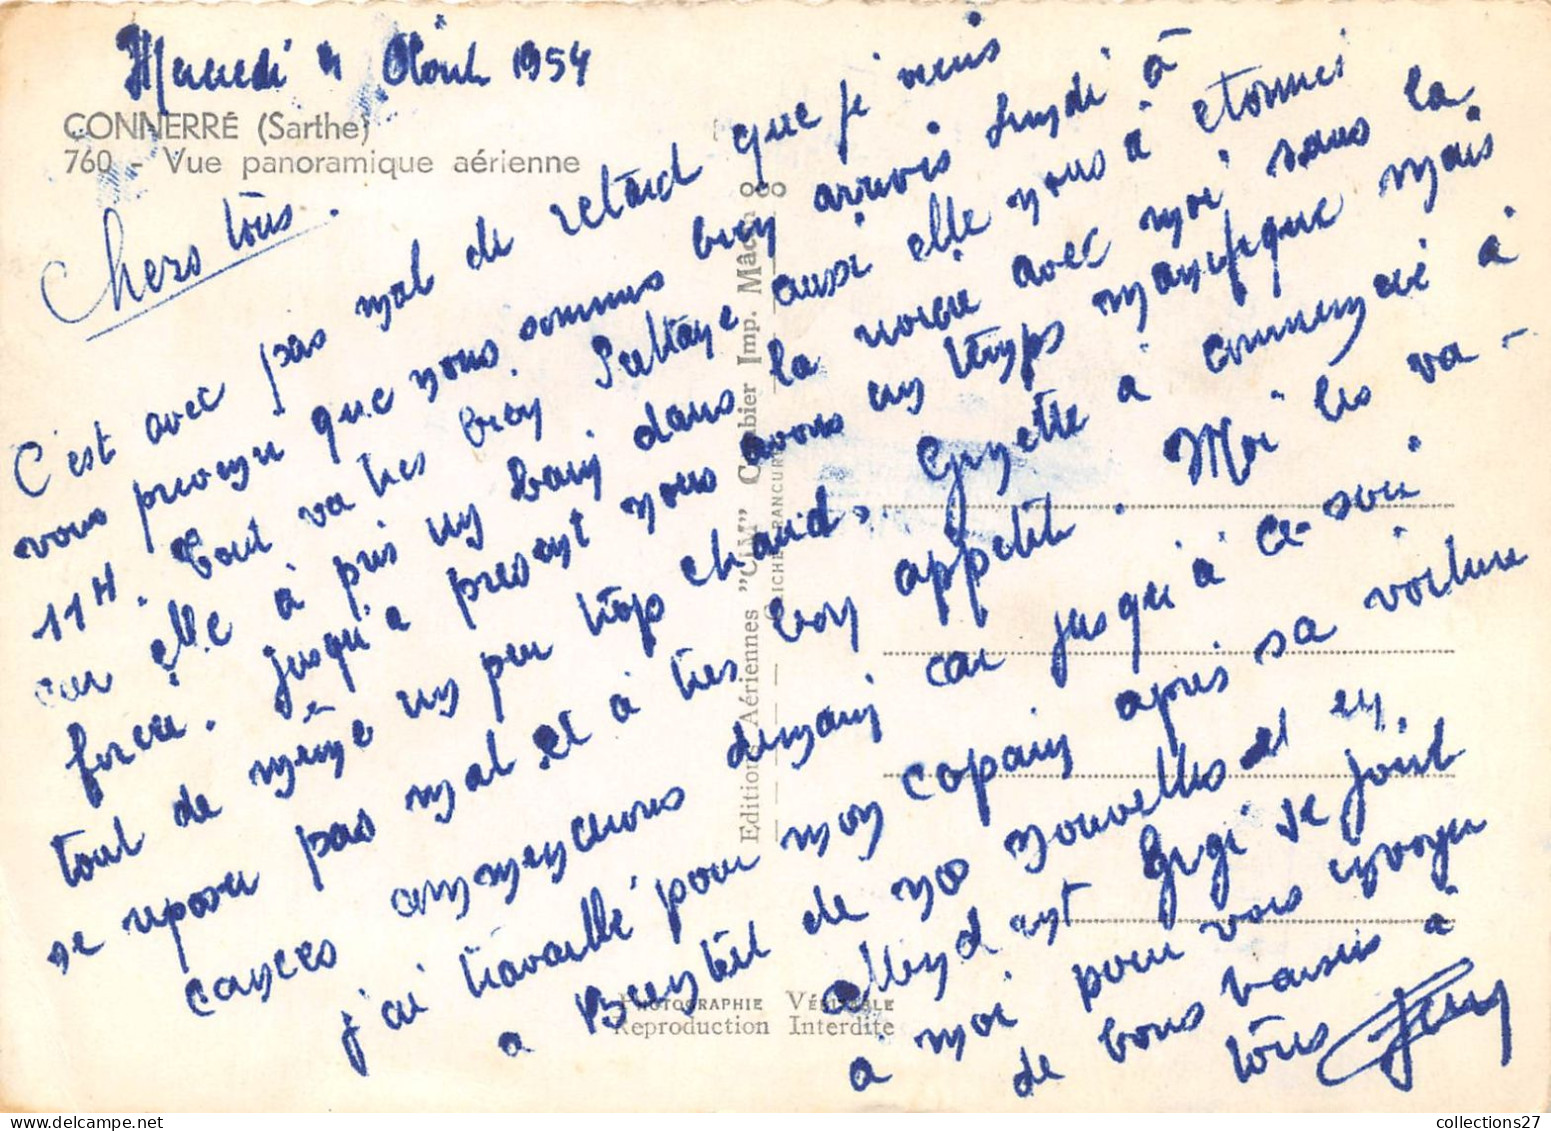 Mercredi 4 Août 1954
CONNERRÉ (Sarthe)
760 - Vue panoramique aérienne
Chers tous.
C'est avec pas mal de retard que je viens
vous prevenir que nous sommes bien arrivés Lundi à
11H. Tout va tres bien aussi elle nous à etonnés
car elle à pris un bain dans la riviere avec moi sans la
forcer. Jusqu'a present nous avons un temps magnifique mais
tout de même un peu trop chaud. Ginette a commencé à
se reposer pas mal et à tres bon appetit. Moi les va-
cances commencerons demain car jusqu'à ce soir
j'ai travaillé pour mon copain apres sa voiture
a de nos nouvelles et en
attendant Gigi se joint
a moi pour vous envoyer
de bons baisers à
tous
Editions Aériennes "CIM" Combier Imp. Mâcon
PHOTOGRAPHIE VÉRITABLE
Reproduction Interdite
collections27